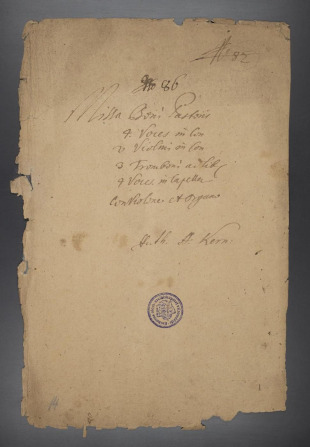 No 87
No 86
Missa Boni Pastoris
4. Voces in Con
2 Violini in Con
3 Tromboni ad lib
4 Voces in Capella
Con Violone et Organo
A. Kern